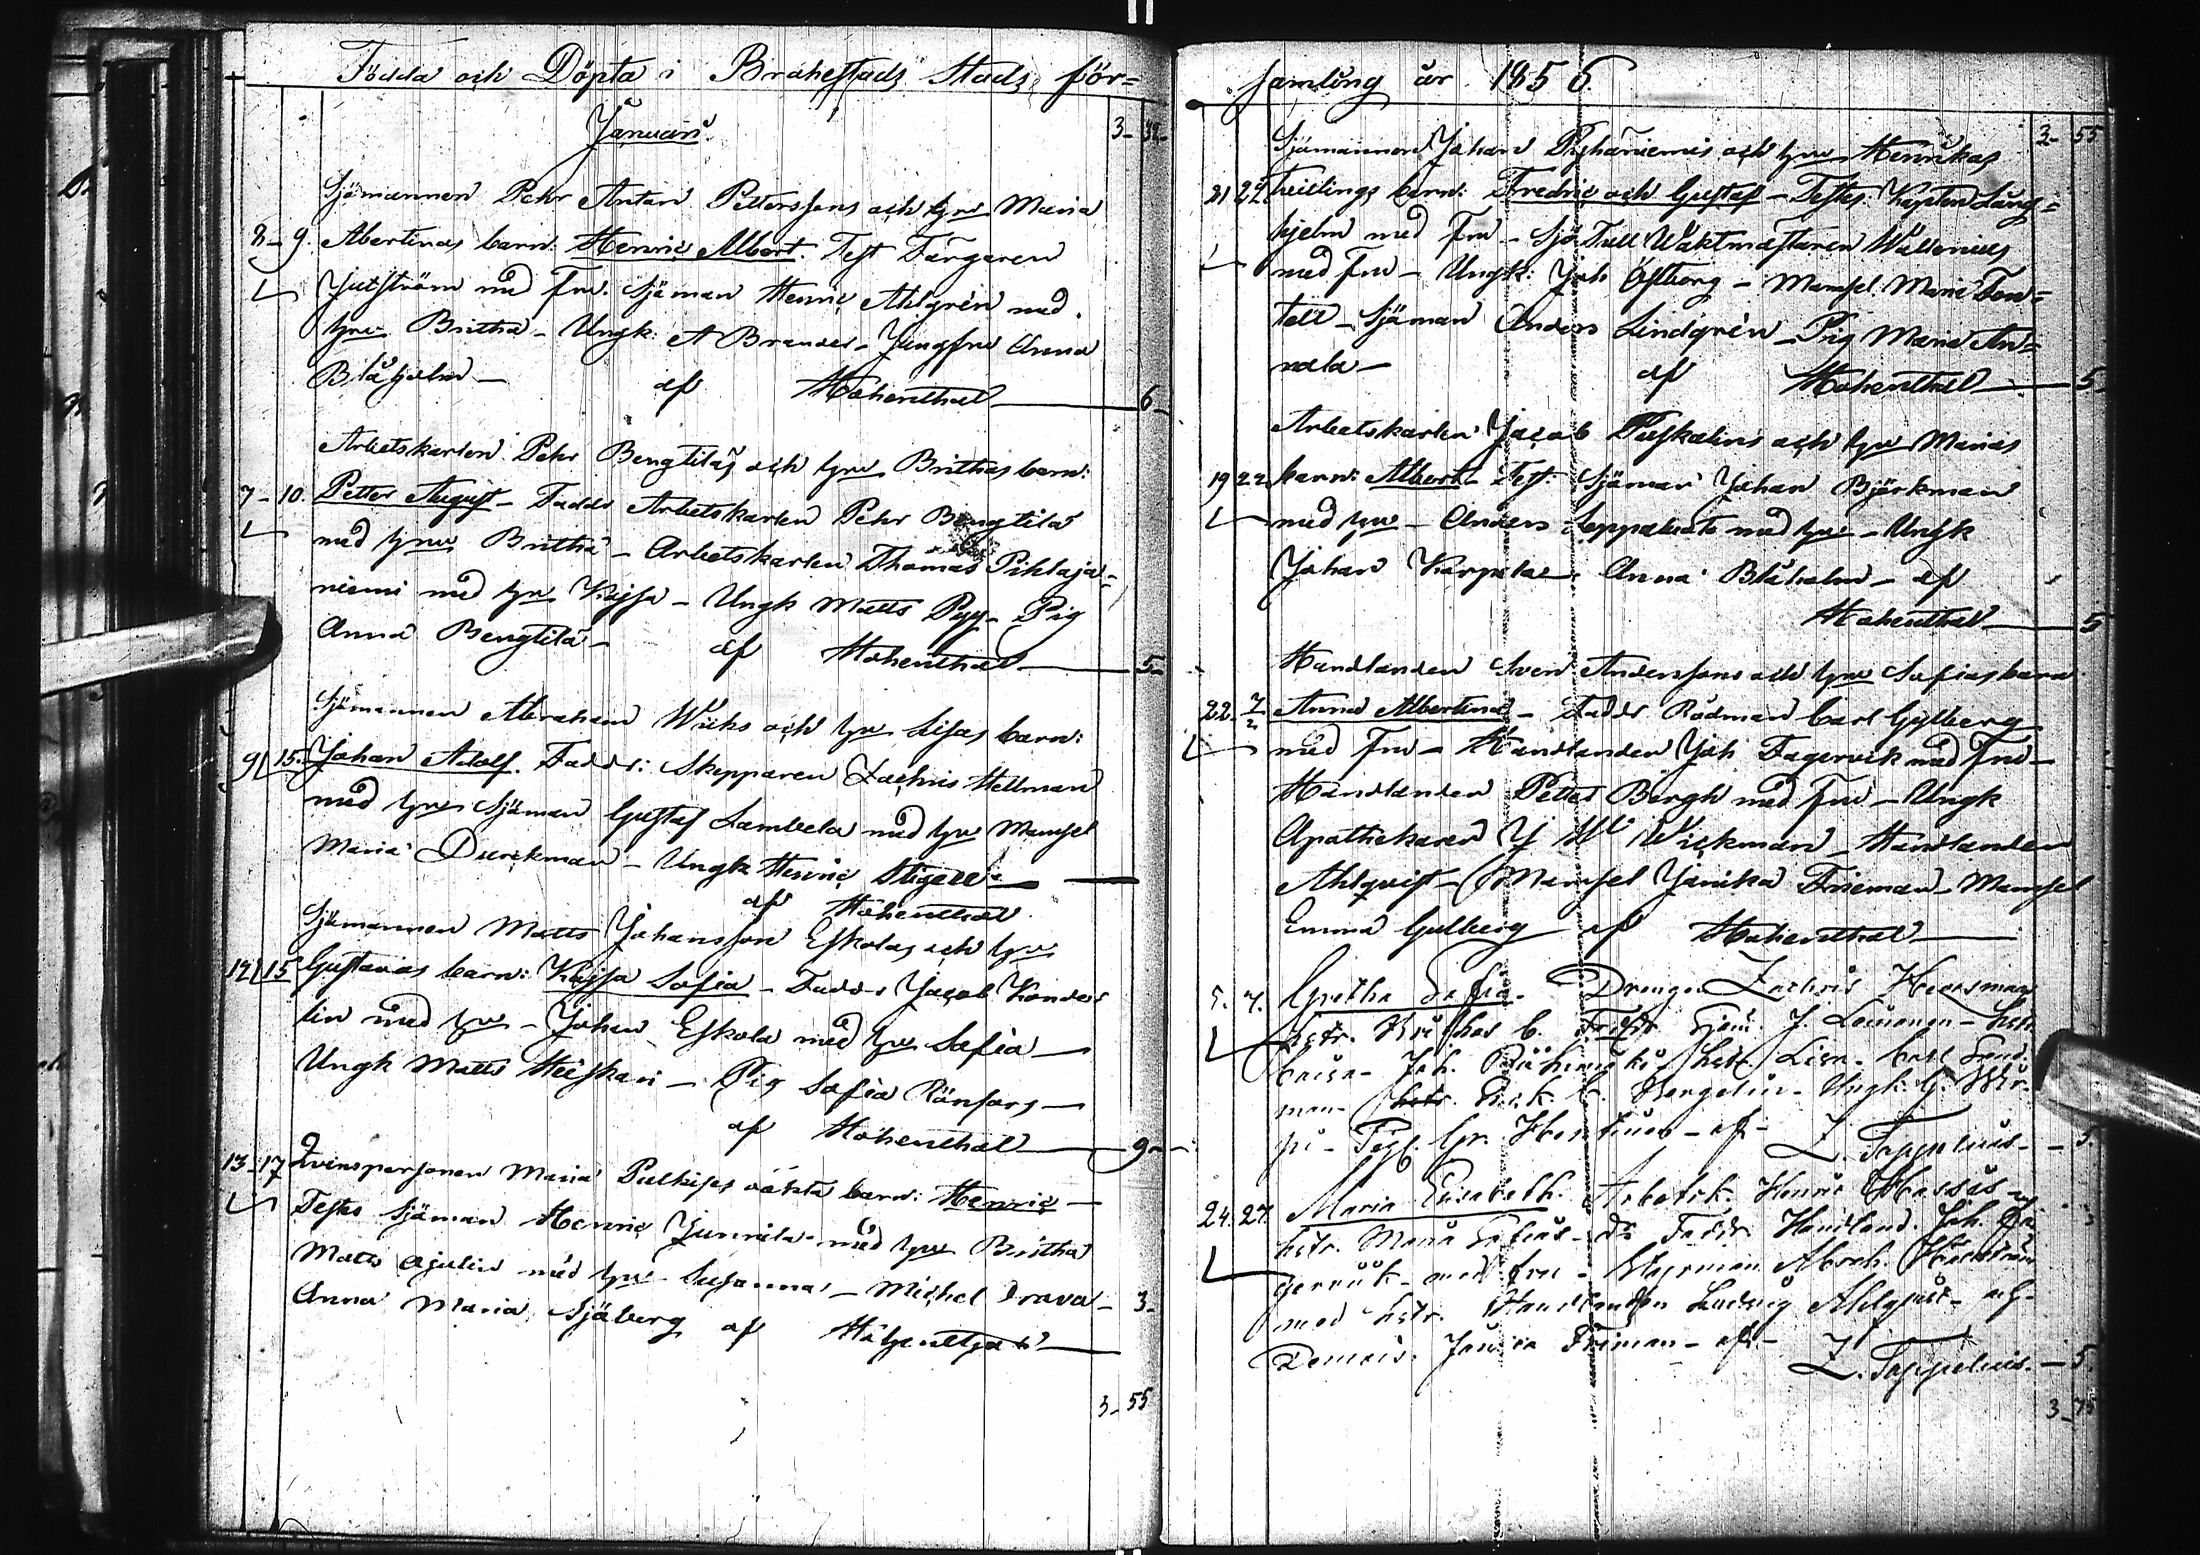 Födda och Döpta i Brahestads Stads för=
Januari.
3-
Sjömannen Pehr Anton Petterssons och hru Maria
8-9. Albertinas barn: Henric Albert. Test Färgaren
Ljutström med Fru. Sjöman Henric Ahlgrén med
hru Britha - Ungk: A Brander - Jungfru Anna
Blåholm - af Hohenthal 6-
Arbetskarlen Pehr Bengtiläs och hru Brithas barn:
7-10. Petter August - Fadd: Arbetskarlen Pehr Bengtilä
med hru Britha - Arbetskarlen Thomas Pihlaja=
niemi med hru Kajsa - Ungk Matts Pyy - Pig
Anna Bengtilä - af Hohenthal 5-
Sjömannen Abraham Wichs och hru Lisas barn:
9 15. Johan Adolf. Fadd: Skepparen Zachris Hellman
med hru Sjöman Gustaf Lambela med hru Mamsel
Maria Durckman - Ungk Henric Stigell
af Hohenthal
Sjömannen Matts Johansson Eskolas och hru
12 15 Gustavas barn: Kajsa Sofia - Fadd: Jacob Kande
lin med hru - Johan Eskola med hru Sofia -
Ungk Matts Heiskari - Pig Sofia Rönfors -
af Hohenthal 9-
13-17 Qvinspersonen Maria Pulkises oäkta barn: Henric -
Testes Sjöman Henric Junnila med hru Britha
Matts Ajulin med hru Susanna - Michel Drava - 3-
Anna Maria Sjöberg af Hohenthal
3-55
samling år 1856.
3-55
Sjömannen Johan Pyhäniemis och hru Henrikas
21 22 Tvillings barn: Fredric och Gustaf - Testes: Kapten Lång=
hjelm med Fru - Sjö Tull Waktmästaren Wallenius
med Fru - Ungk: Joh Östberg - Mamsel Maria Fon=
tell - Sjöman Anders Lindgrén - Pig Maria An=
nala - af Hohenthal 5
Arbetskarlen Jacob Puskalins och hru Marias
19 22 barn: Albert - Test: Sjöman Johan Björkman
med hru - Anders Leppäluoto med hru - Ungk
Johan Karpala - Anna Blåholm - af
Hohenthal 5
Handlanden Sven Anderssons och hru Sofias barn
22. 2/2 Anna Albertina - Fadd: Rådman Carl Gylberg
med Fru - Handlanden Joh Fagervik med Fru -
Handlanden Petter Bergh med Fru - Ungk
Apothekaren J W Wickman - Handlanden
Ahlqvist - Mamsel Janika Frieman - Mamsel
Emma Gulberg af Hohenthal
5. 7. Gretha Sofia. Drengen Zachris
hstr. Brithas b. Fadd: Sjöm. J. - hstr.
Caisa - Joh. hstr Lisa - Carl
man - hstr. - Ungk. G.
Gr. - af - Z. Toppelius - 5.
24. 27. Maria Elisabeth. Arbetsk. Henric
hstr. Maria Sofias - dr Fadd: Handland. Joh. Fa
gervik - med fru - Styrman Abrah.
med hstr. Handlanden Ludvig Ahlqvist - och
Janica Friman - af - Z. Toppelius. - 5.
3-75